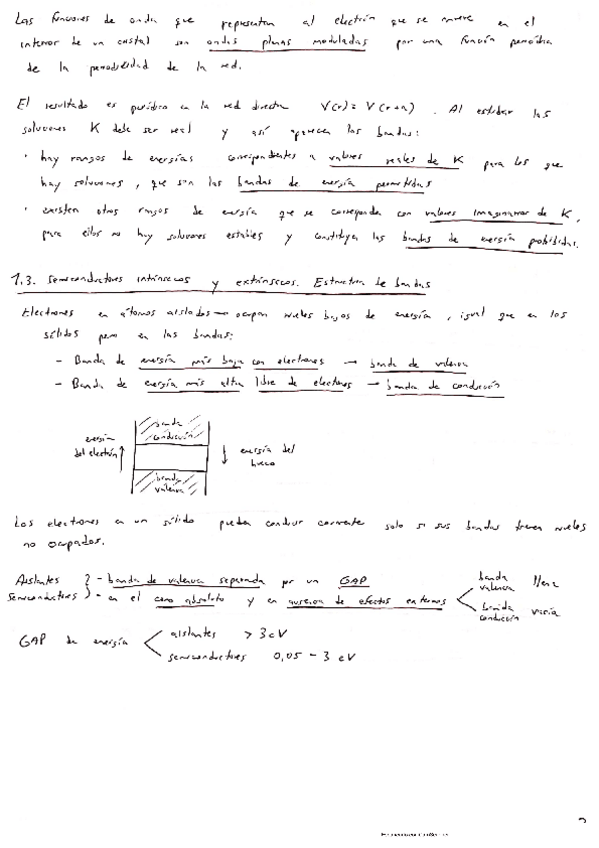 Las funciones de onda que representan al electrón que se mueve en el
interior de un cristal son ondas planas moduladas por una función periódica
de la periodicidad de la red.
El resultado es periódico en la red directa V(r) = V(r+a). Al estudiar las
soluciones K debe ser real y así aparecen las bandas:
· hay rangos de energías correspondientes a valores reales de K para los que
hay soluciones, que son las bandas de energía permitidas
· existen otros rangos de energía que se corresponden con valores imaginarios de K,
para ellos no hay soluciones estables y constituyen las bandas de energía prohibidas.
1.3. Semiconductores intrínsecos y extrínsecos. Estructura de bandas
Electrones en átomos aislados → ocupan niveles bajos de energía, igual que en los
sólidos pero en las bandas:
- Banda de energía más baja con electrones → banda de valencia
- Banda de energía más alta libre de electrones → banda de conducción
banda
conducción
energía
del electrón ↑
↓ energía del
hueco
banda
valencia
Los electrones en un sólido pueden conducir corriente solo si sus bandas tienen niveles
no ocupados.
Aislantes } - banda de valencia separada por un GAP
Semiconductores } - en el cero absoluto y en ausencia de efectos externos
banda
valencia llena
banda
conducción vacía
GAP de energía
aislantes > 3 eV
semiconductores 0,05 - 3 eV